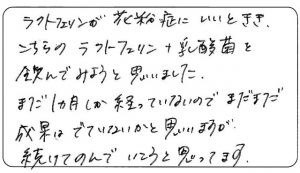 ラクトフェリンが花粉症にいいときき、
こちらのラクトフェリン+乳酸菌を
飲んでみようと思いました。
まだ1カ月しか経っていないのでまだまだ
成果はでていないかと思いますが
続けてのんでいこうと思ってます。